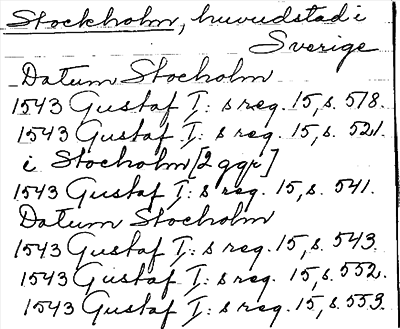 Stockholm, huvudstad i
Sverige
Datum Stocholm
1543 Gustaf I: s reg. 15, s. 518.
1543 Gustaf I: s reg. 15, s. 521.
i Stocholm [2 ggr]
1543 Gustaf I: s reg. 15, s. 541.
Datum Stocholm
1543 Gustaf I: s reg. 15, s. 543.
1543 Gustaf I: s reg. 15, s. 552.
1543 Gustaf I: s reg. 15, s. 553.